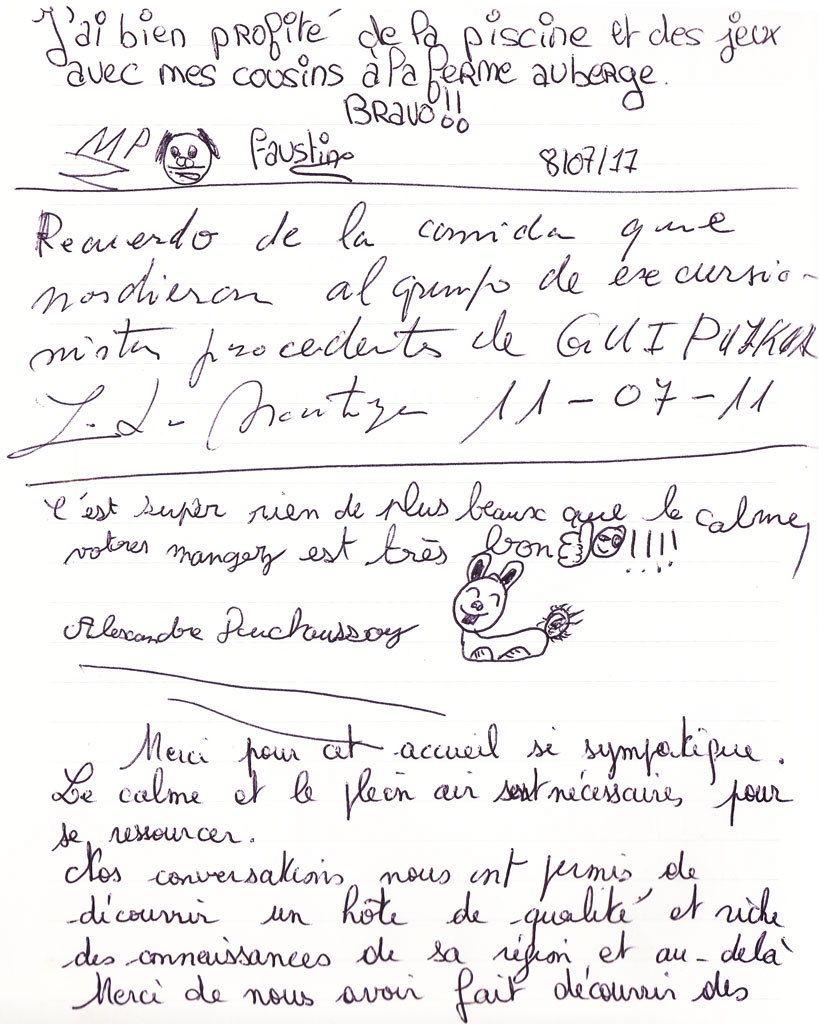 J'ai bien profité de la piscine et des jeux
avec mes cousins à la ferme auberge.
BRAVO!!
MP Faustine 8/07/17
Recuerdo de la comida que
nosdieron al grupo de excursio-
nistas procedentes de GUIPUZKOA
11-07-11
C'est super rien de plus beaux que le calme,
votres mangez est très bon !!!!
Alexandre Duchaussoy
Merci pour cet accueil si sympatique.
Le calme et le plein air sont nécessaires pour
se ressourcer.
Nos conversations nous ont permis de
découvrir un hôte de qualité et riche
des connaissances de sa région et au-delà
Merci de nous avoir fait découvrir des